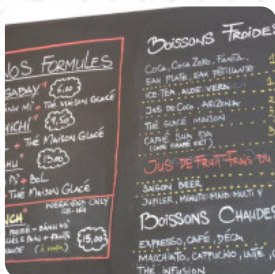 NOS FORMULES
GABAY 6,00
THÉ MAISON GLACÉ
MICHI 9,50
+ THÉ MAISON GLACÉ
13,00
+ BOL
THÉ MAISON GLACÉ
WEEK-END ONLY
15,00
BOISSONS FROIDES
COCA, COCA ZERO, FANTA,
EAU PLATE, EAU PÉTILLANTE
ICE-TEA ALOE VERA
JUS DE COCO ARIZONA
THÉ GLACÉ MAISON
CAFÉ SUA ĐA
JUS DE FRUIT FRAIS DU
SAIGON BEER
JUPILER, MINUTE MAID MULTI V
BOISSONS CHAUDES
EXPRESSO, CAFÉ, DÉCA
MACCHIATO, CAPPUCINO, LATTE,
THÉ INFUSION